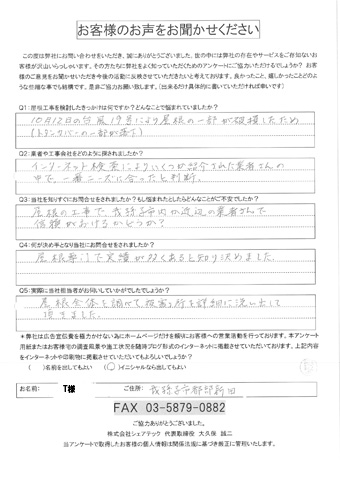 お客様のお声をお聞かせください
この度は弊社にお問い合わせをいただき、誠にありがとうございました。世の中には弊社の存在やサービスをご存知ないお
客様が沢山いらっしゃいます。その方たちに弊社をよく知っていただくためのアンケートにご協力いただけるでしょうか？お客
様のご意見をお聞かせいただき今後の活動に反映させていただきたいと考えております。良かったこと、嬉しかったことどのよ
うな些細な事でも結構です。是非ご協力お願い致します。（出来るだけ具体的に書いていただければ幸いです）
Q1：屋根工事を検討したきっかけは何ですか？どんなことで悩まれていましたか？
10月12日の台風19号により屋根の一部が破損したため
（トタンカバーの一部が落下）
Q2：業者や工事会社をどのように探されましたか？
インターネット検索によりいくつか紹介された業者さんの
中で、一番ニーズに合ったと判断。
Q3：当社を知りすぐにお問合せをされましたか？もし悩まれたとしたらどんなことがご不安でしたか？
屋根の工事で、我孫子市内か近辺の業者さんで
信頼がおけるかどうか？
Q4：何が決め手となり当社にお問合せをされましたか？
屋根専門で実績が多くあると知り決めました。
Q5：実際に当社担当者がお伺いしていかがでしたでしょうか？
屋根全体を調べて、被害箇所を詳細に洗い出して
頂きました。
＊弊社は広告宣伝費を極力かけない為にホームページだけを頼りにお客様への営業活動を行っております。本アンケート
用紙またはお客様宅の調査風景や施工状況を随時ブログ形式のインターネットに掲載させていただいております。上記内容
をインターネットや印刷物に掲載させていただいてもよろしいでしょうか？
（　）名前を出してもよい　（〇）イニシャルなら出してもよい
お名前： T様　ご住所： 我孫子市都部新田
FAX 03-5879-0882
ご協力ありがとうございました。
株式会社シェアテック 代表取締役 大久保 誠二
当アンケートで取得したお客様の個人情報は関係法規に基づき厳正に管理いたします。